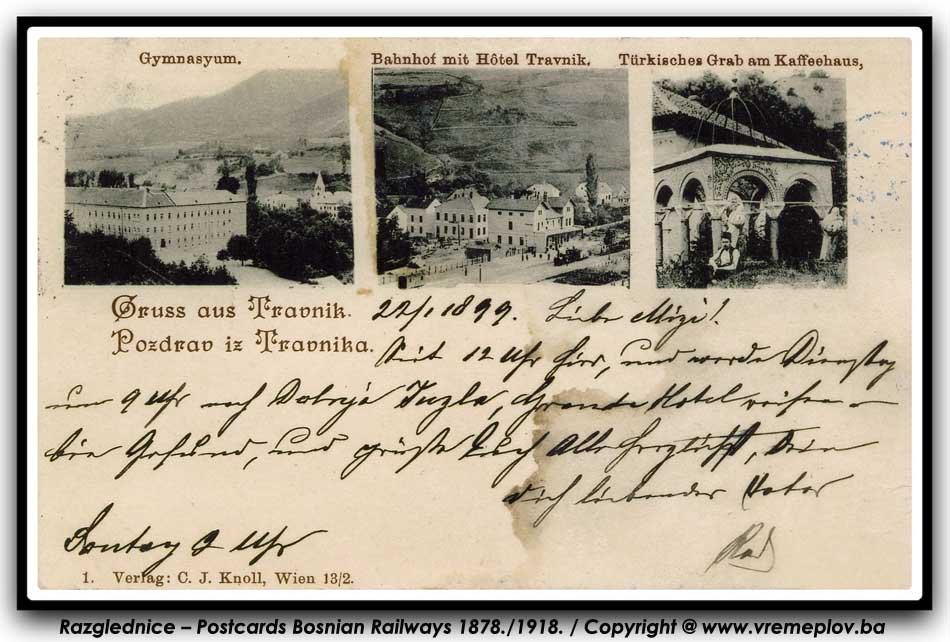 Gymnasyum.
Bahnhof mit Hôtel Travnik.
Türkisches Grab am Kaffeehaus,
Gruss aus Travnik.
Pozdrav iz Travnika.
22/1 1899. Liebe Mizi!
Seit 12 Uhr hier, und werde Dienstag
um 9 Uhr nach Dolnja Tuzla, Grande Hotel reisen –
bin Gesund, und grüße Euch Alle herzlichst, Dein
dich liebender Vater
Sontag 9 Uhr
1. Verlag: C. J. Knoll, Wien 13/2.
Razglednice – Postcards Bosnian Railways 1878./1918. / Copyright @ www.vremeplov.ba